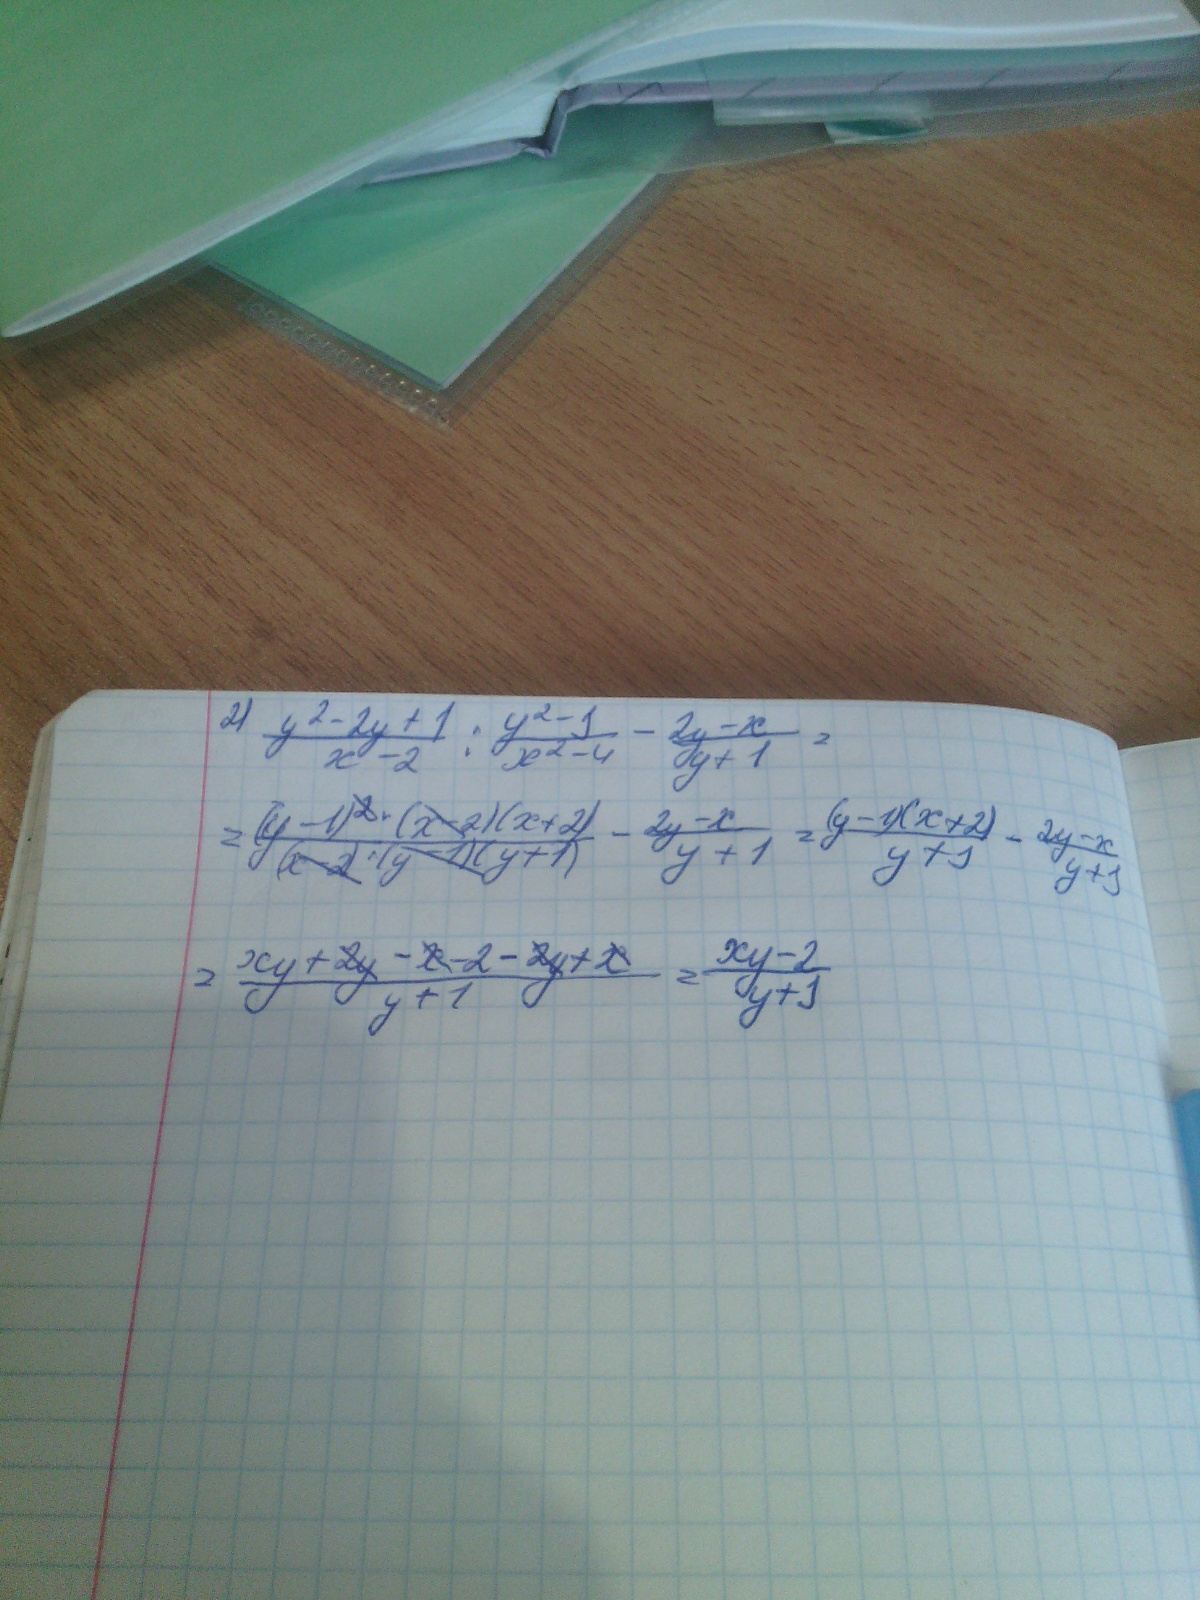 2) (y²-2y+1)/(x-2) : (y²-1)/(x²-4) - (2y-x)/(y+1) =
= ((y-1)²·(x-2)(x+2))/((x-2)·(y-1)(y+1)) - (2y-x)/(y+1) = ((y-1)(x+2))/(y+1) - (2y-x)/(y+1)
= (xy+2y-x-2-2y+x)/(y+1) = (xy-2)/(y+1)